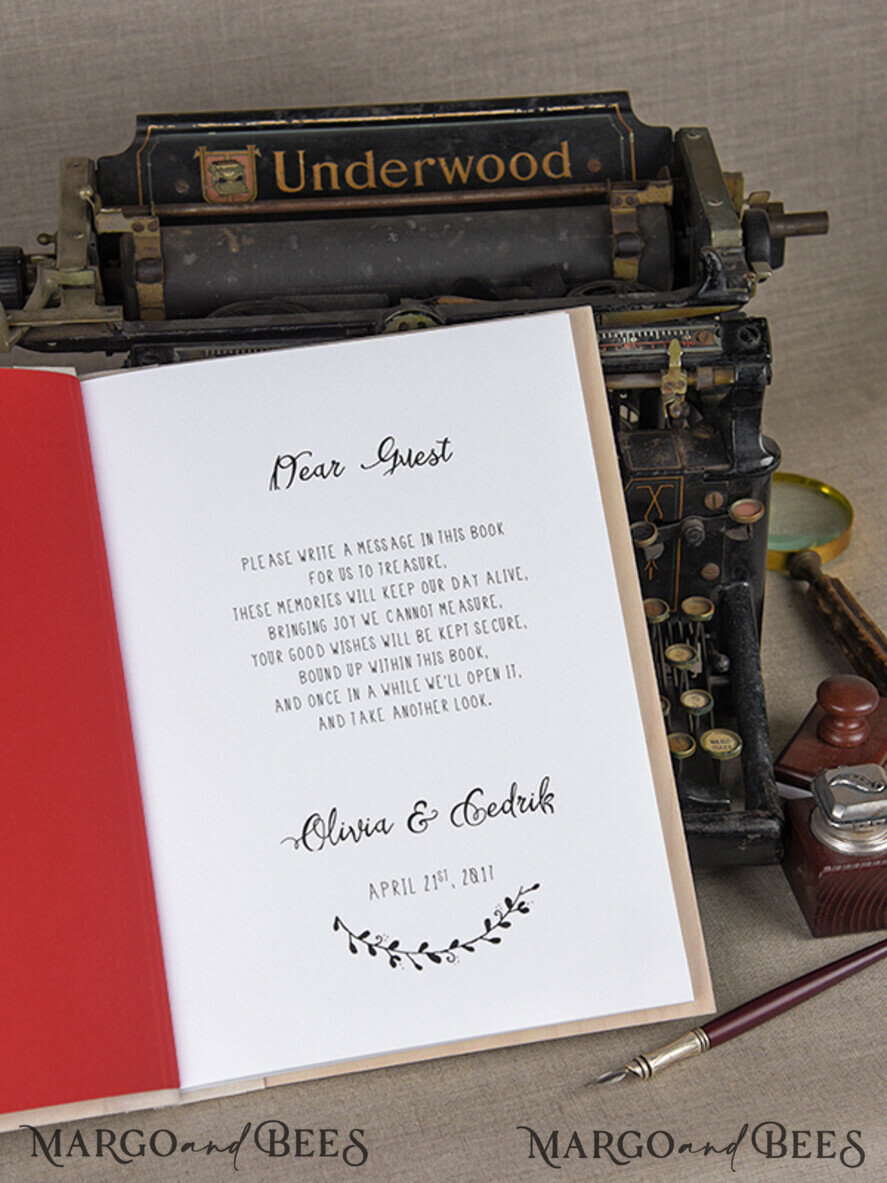 Underwood
Dear Guest
PLEASE WRITE A MESSAGE IN THIS BOOK
FOR US TO TREASURE,
THESE MEMORIES WILL KEEP OUR DAY ALIVE,
BRINGING JOY WE CANNOT MEASURE,
YOUR GOOD WISHES WILL BE KEPT SECURE,
BOUND UP WITHIN THIS BOOK,
AND ONCE IN A WHILE WE'LL OPEN IT,
AND TAKE ANOTHER LOOK.
Olivia & Cedrik
APRIL 21ST, 2017
MARGO and BEES
MARGO and BEES